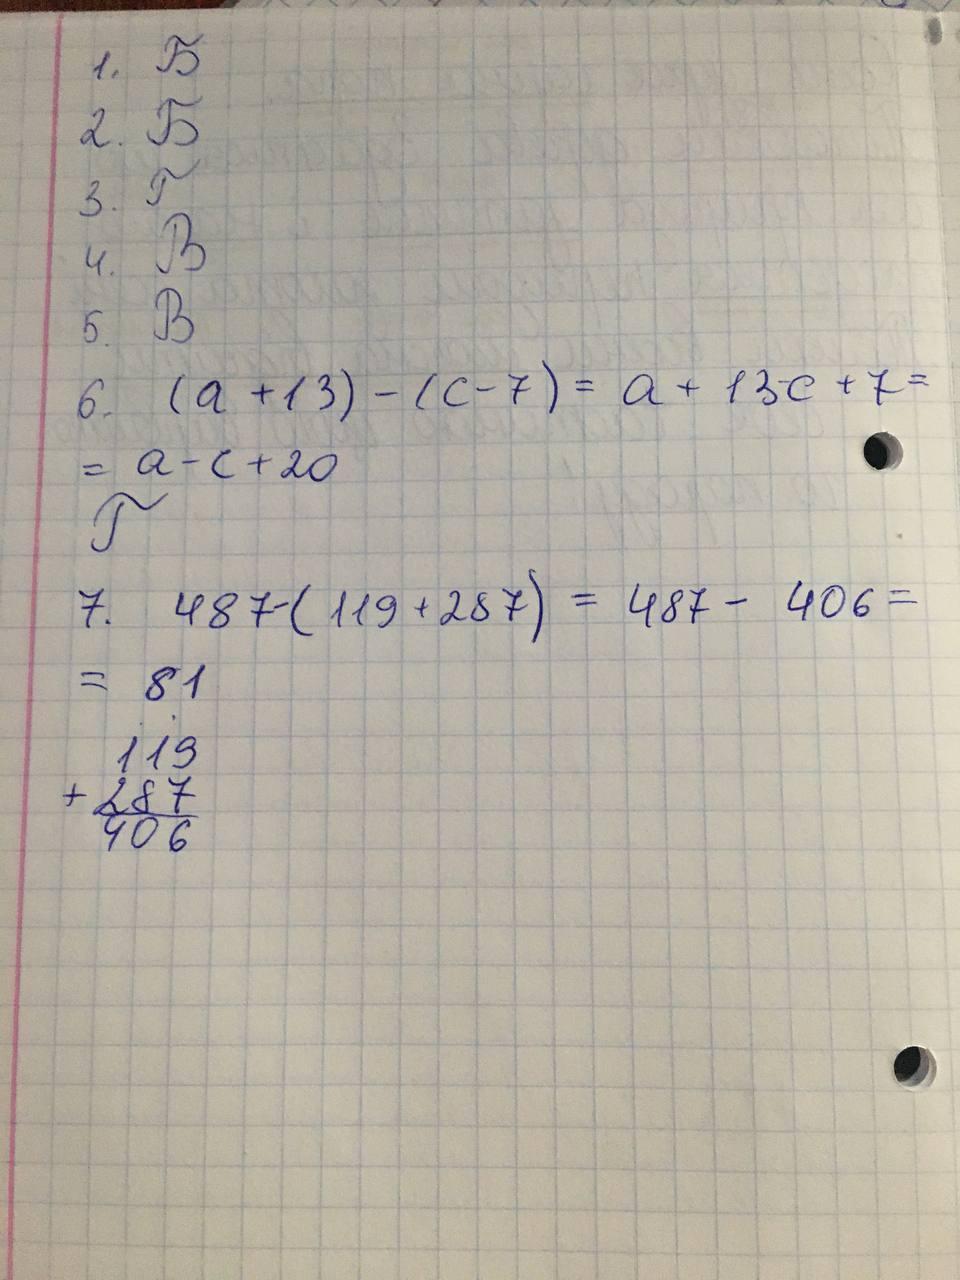 1. Б
2. Б
3. Г
4. В
5. В
6. (a + 13) - (c - 7) = a + 13 - c + 7 =
= a - c + 20
Г
7. 487 - (119 + 287) = 487 - 406 =
= 81
119
+ 287
406